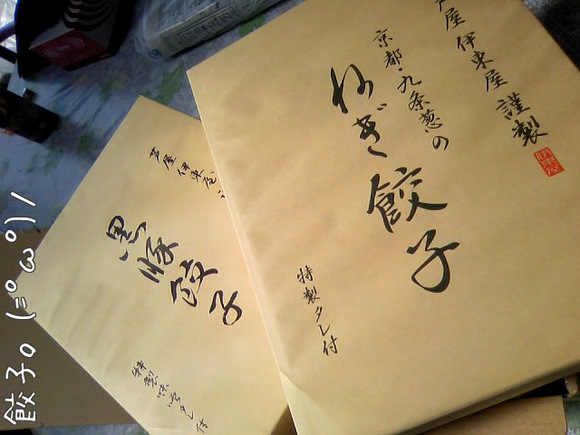 芦屋 伊東屋 謹製
京都・九条葱の
ねぎ餃子
特製タレ付
芦屋 伊東屋
黒豚餃子
特製味噌だれ付
餃子。(=゚ω゚)ノ